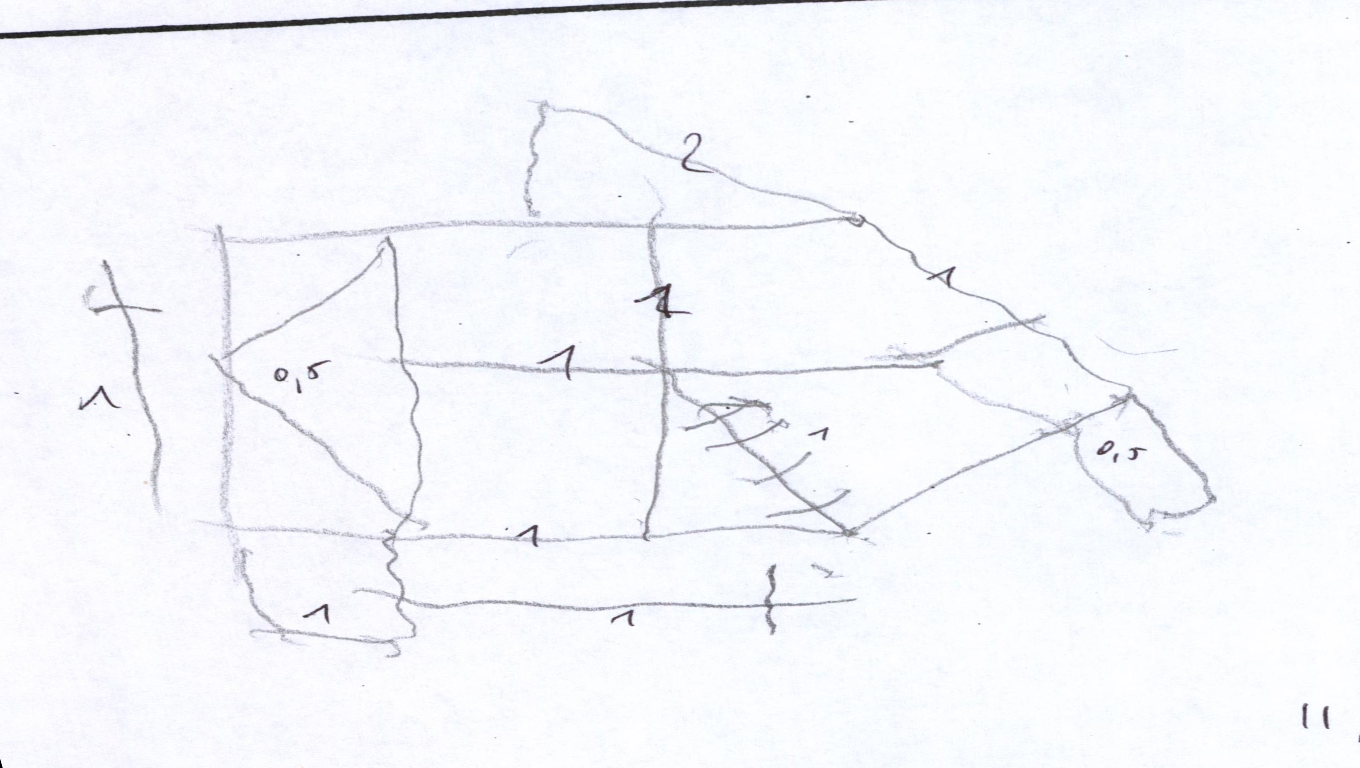 2
1
1
0,5
1
1
1
0,5
1
1
1
11